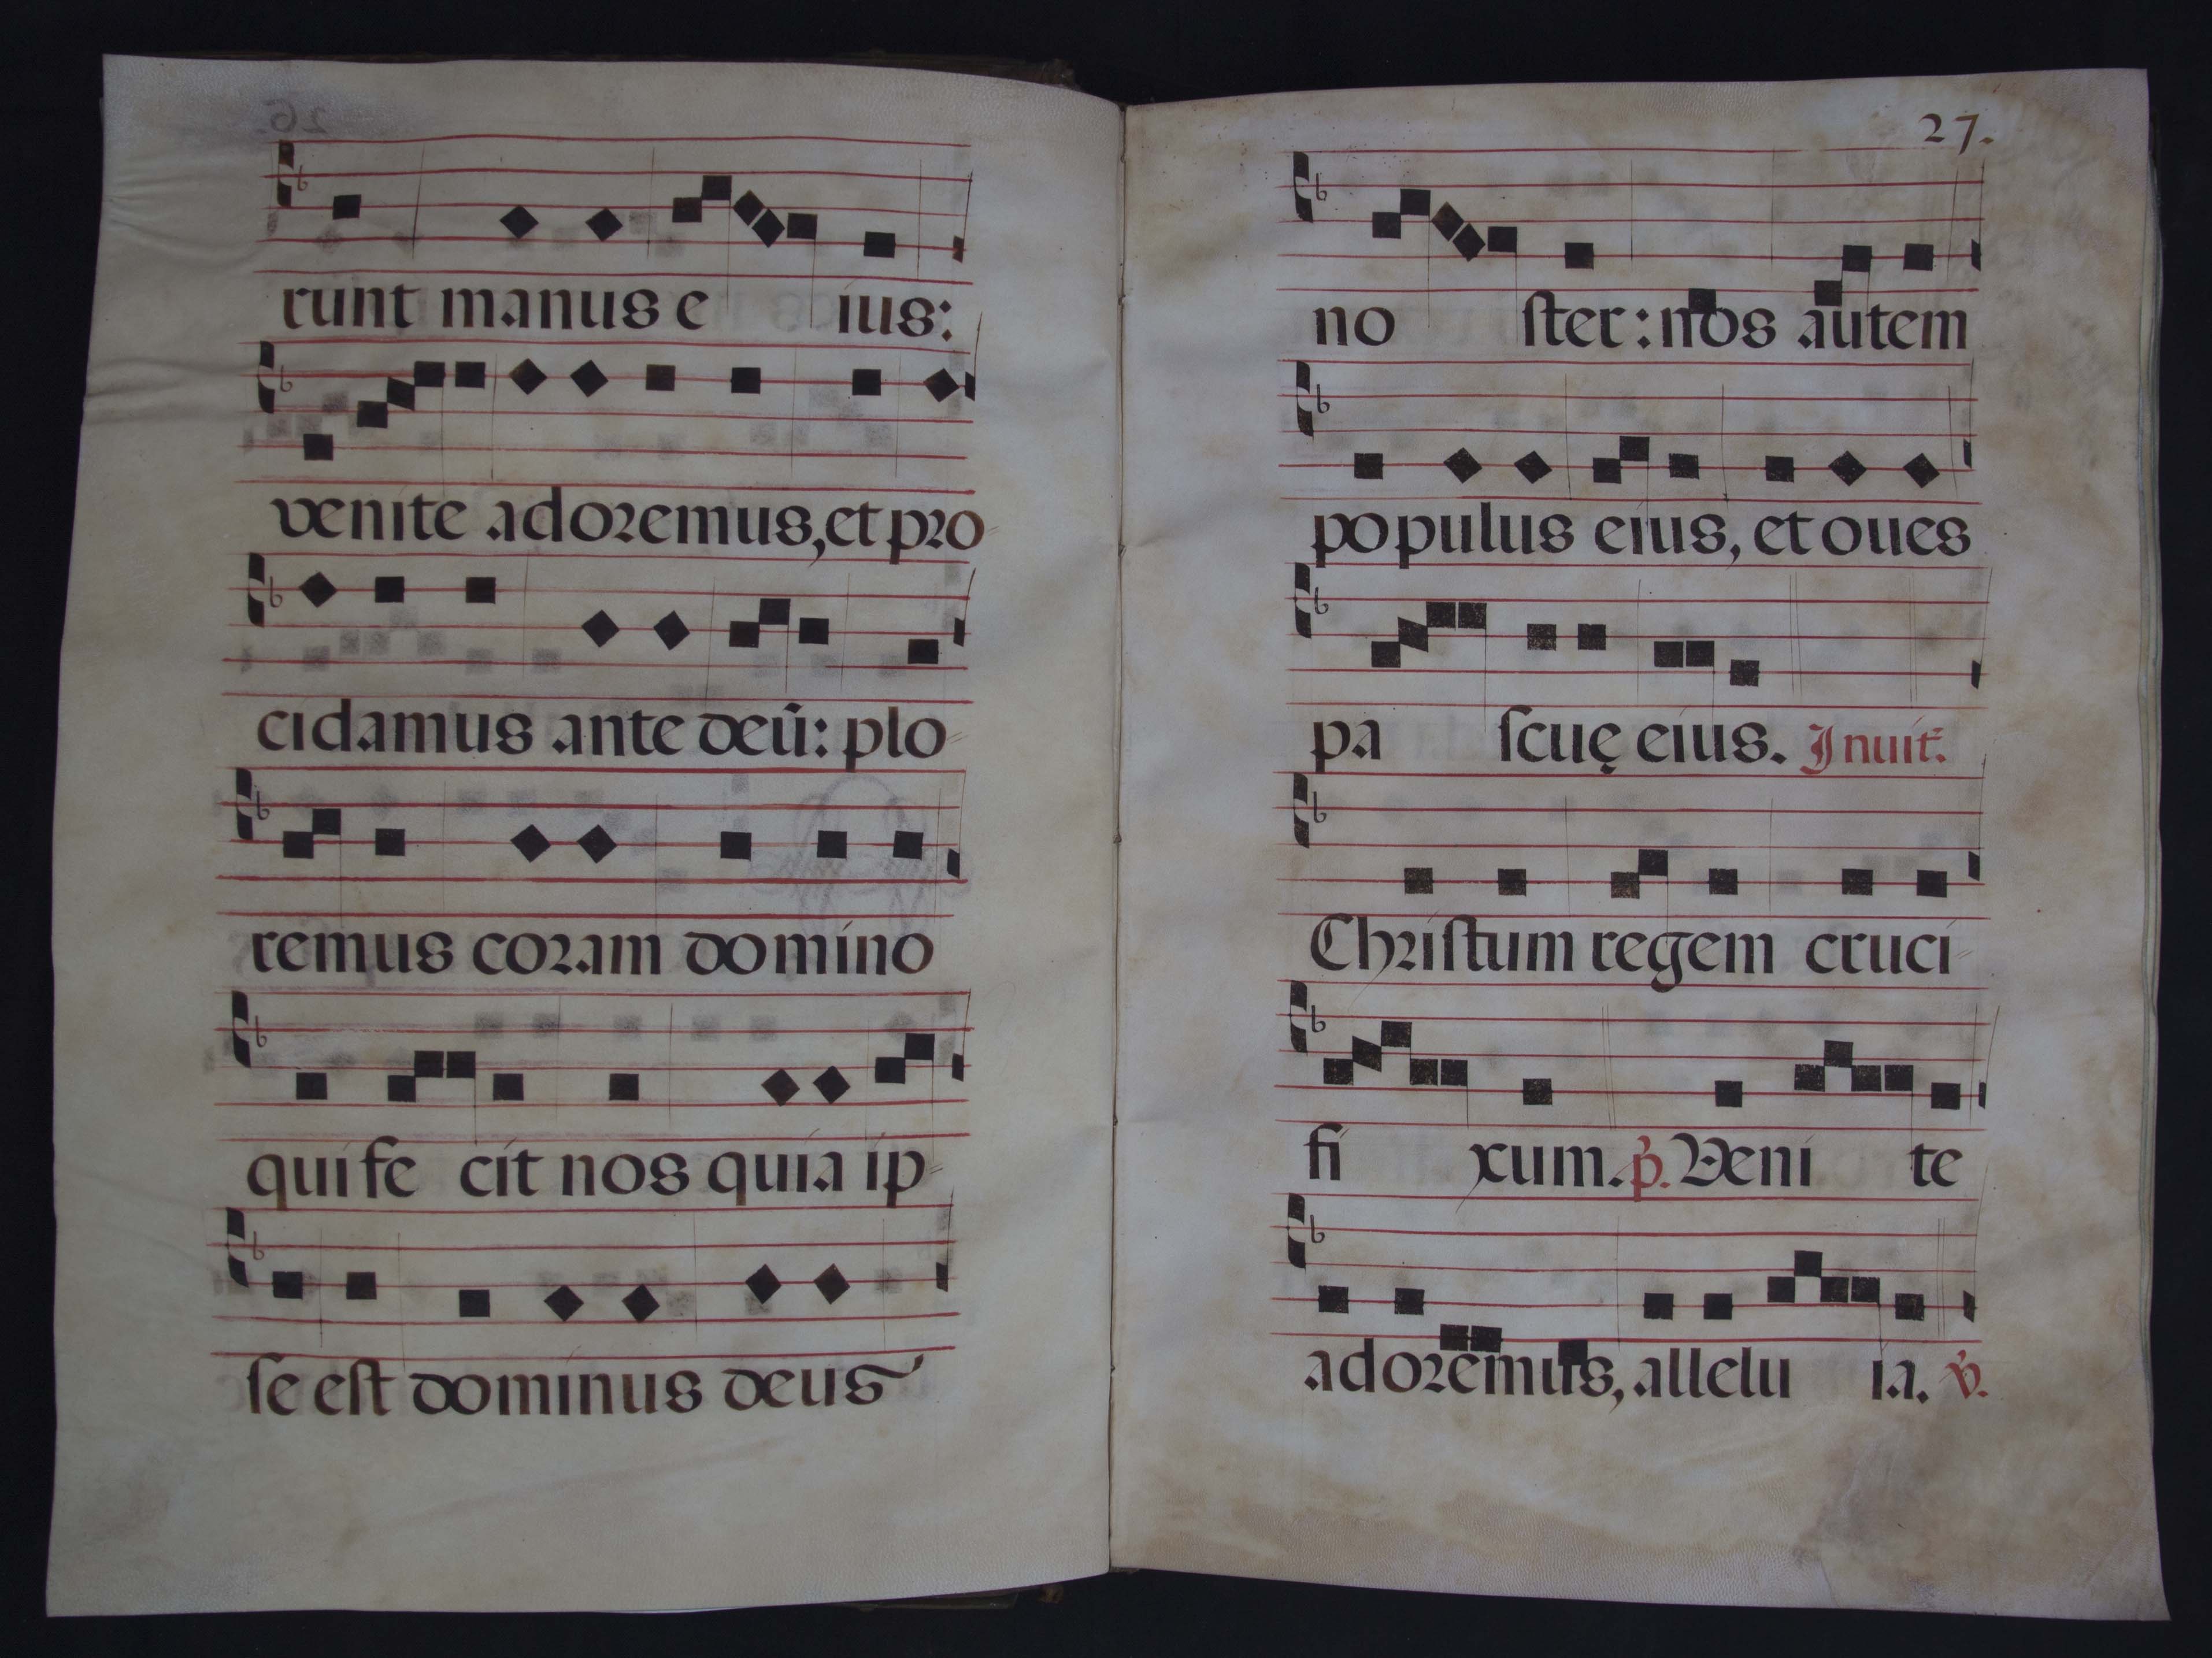 runt manus e ius:
venite adoremus, et pro-
cidamus ante deū: plo-
remus coram domino
qui fe cit nos quia ip-
se est dominus deus
27.
no ster: nos autem
populus eius, et oues
pa scuę eius. Inuit.
Christum regem cruci-
fi xum. p̄. Veni te
adoremus, allelu ia. v̄.